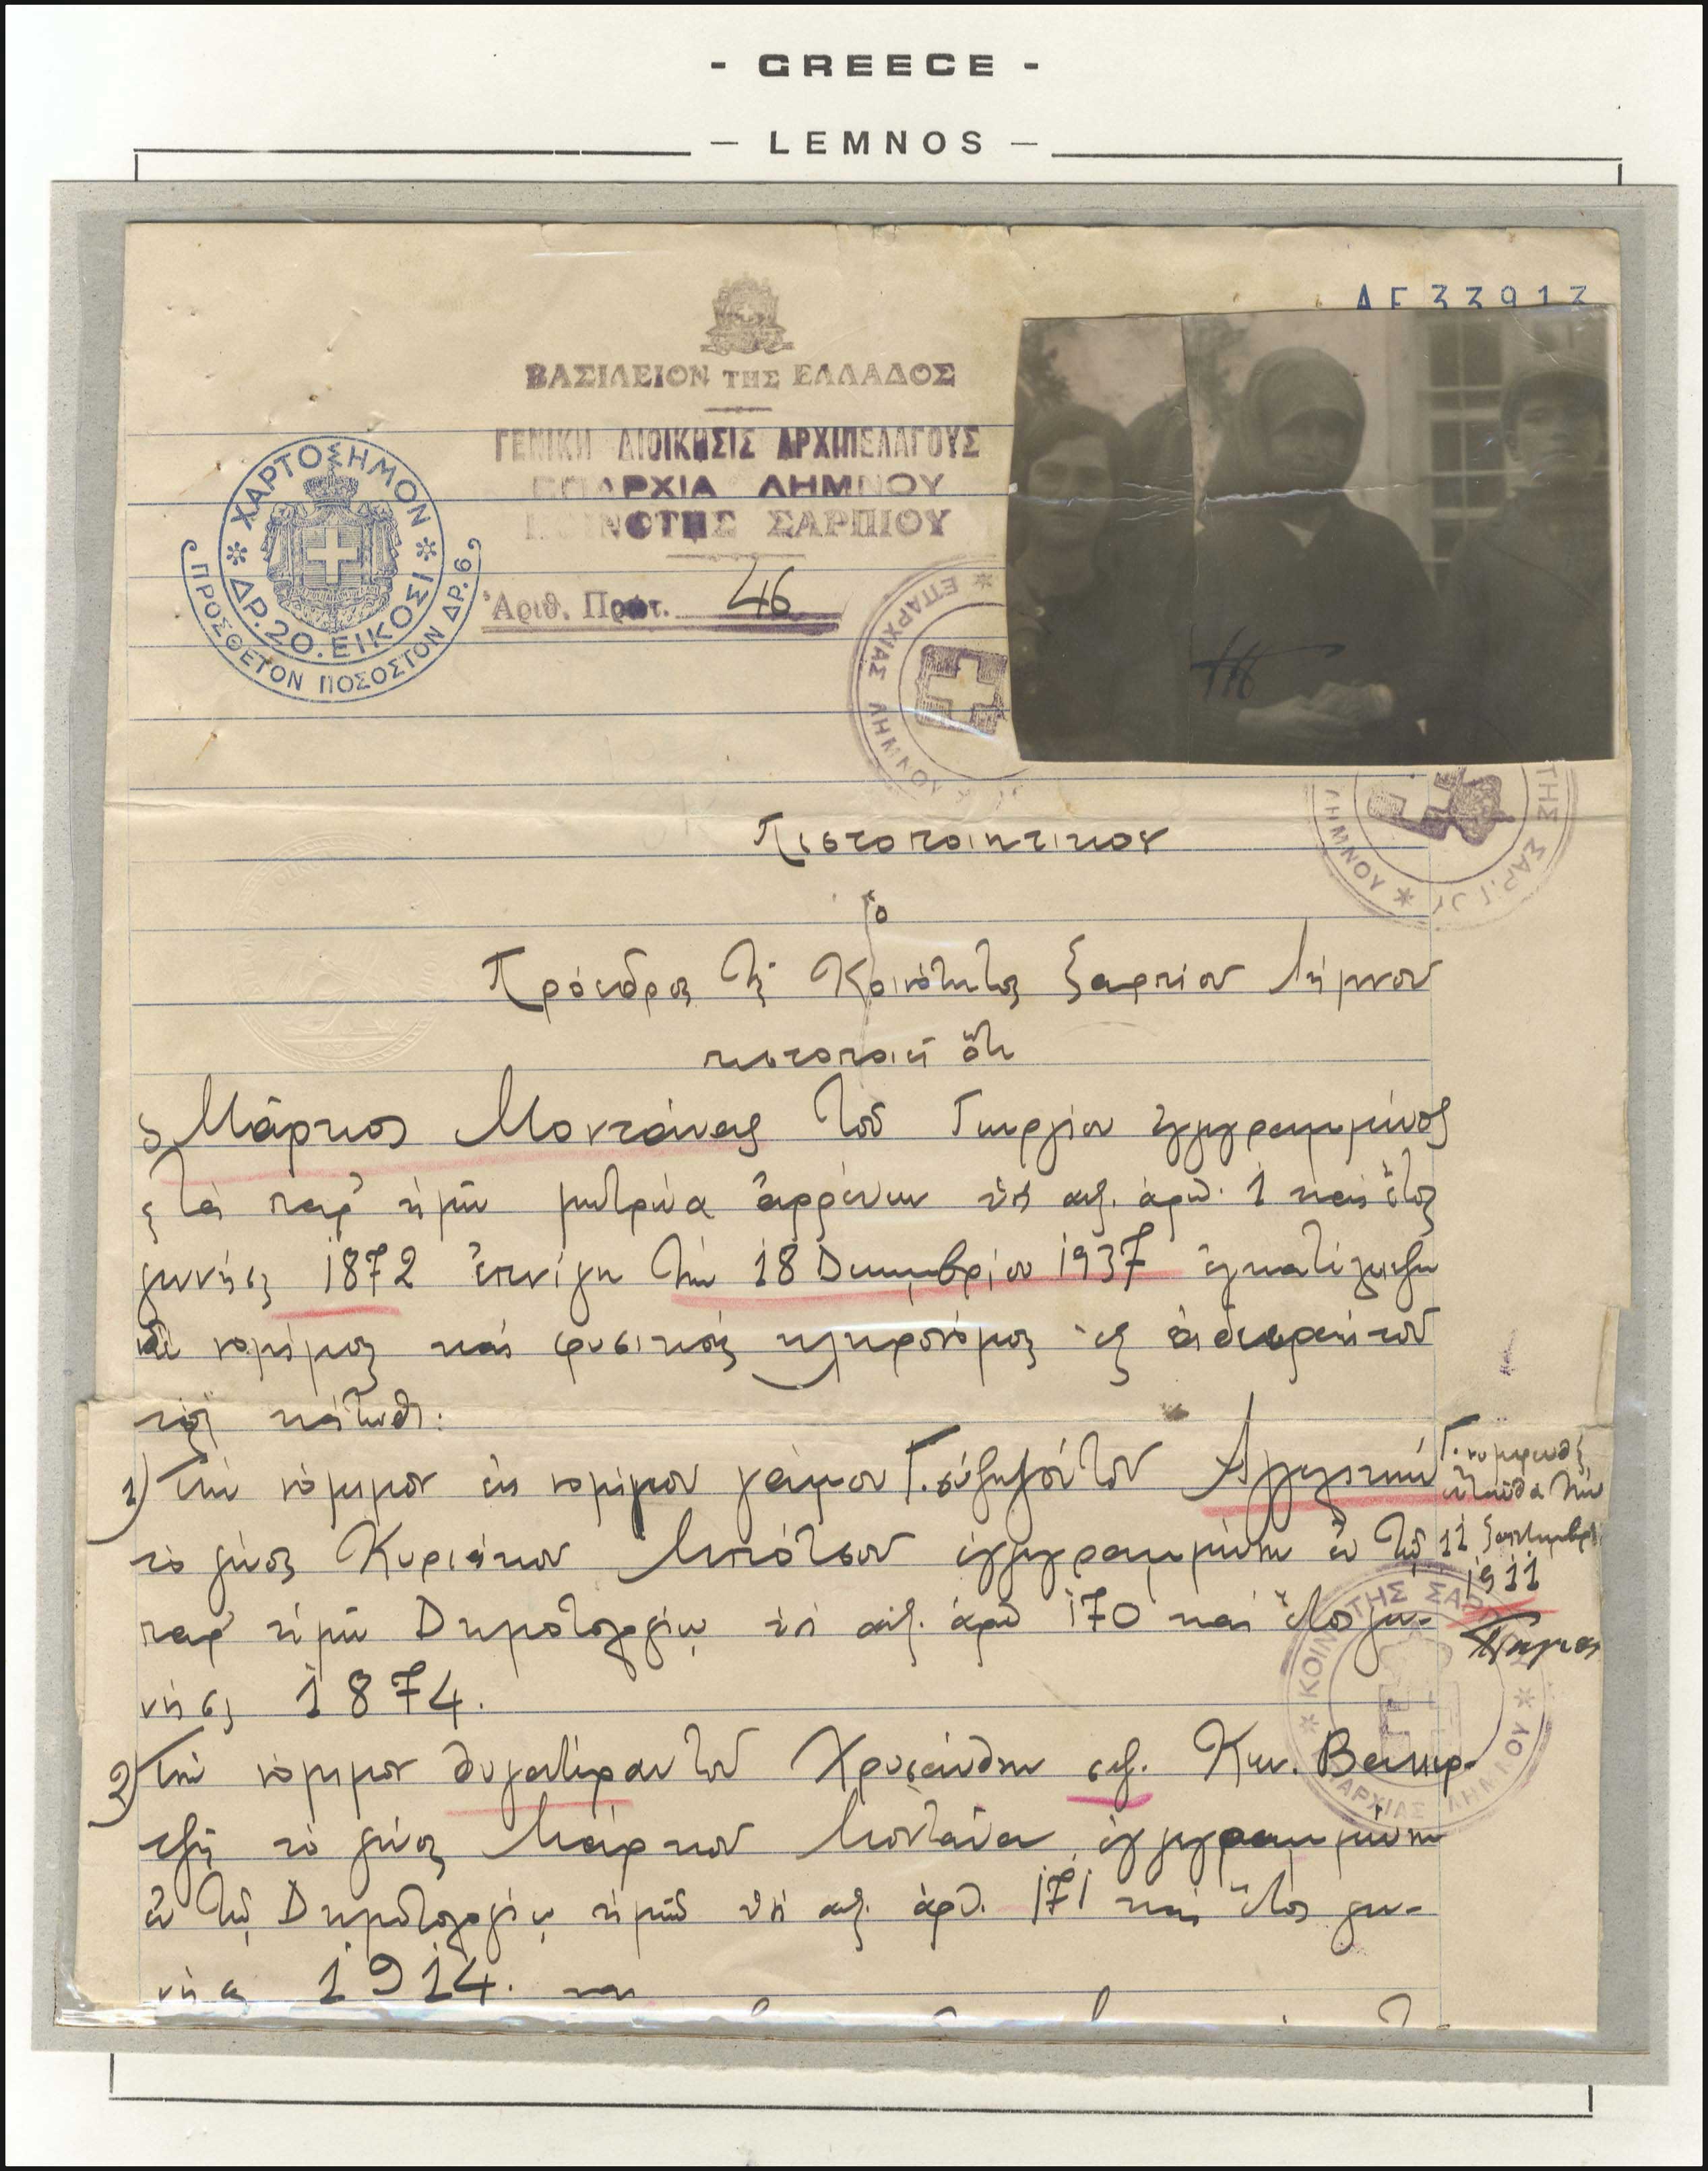 - GREECE -
— LEMNOS —
ΑΓ 33913
ΒΑΣΙΛΕΙΟΝ ΤΗΣ ΕΛΛΑΔΟΣ
ΓΕΝΙΚΗ ΔΙΟΙΚΗΣΙΣ ΑΡΧΙΠΕΛΑΓΟΥΣ
ΕΠΑΡΧΙΑ ΛΗΜΝΟΥ
ΚΟΙΝΟΤΗΣ ΣΑΡΠΙΟΥ
Ἀριθ. Πρωτ. 46
ΧΑΡΤΟΣΗΜΟΝ
ΔΡ. 20. ΕΙΚΟΣΙ
ΠΡΟΣΘΕΤΟΝ ΠΟΣΟΣΤΟΝ ΔΡ. 6
ΕΠΑΡΧΙΑΣ ΛΗΜΝΟΥ
ΤΗΣ ΣΑΡΠΙΟΥ ΛΗΜΝΟΥ
Πιστοποιητικον
Ὁ
Πρόεδρος τῆς Κοινότητος Σαρπίου Λήμνου
πιστοποιεῖ ὅτι
ὁ Μάρκος Μοντάνας τοῦ Γεωργίου ἐγγεγραμμένος
εἰς τὰ παρ' ἡμῖν μητρῶα ἀρρένων ὑπ' αὐξ. ἀριθ. 1 καὶ ἔτος
γεννήσ. 1872 ἐπνίγη τὴν 18 Δεκεμβρίου 1937 ἐγκατέλειψεν
δὲ νομίμους καὶ φυσικοὺς κληρονόμους ἐξ ἀδιαθέτου
τοὺς κάτωθι:
1) Τὴν νόμιμον ἐκ νομίμου γάμου Γ. σύζυγόν του Ἀγγελικὴν
τὸ γένος Κυριάκου Μπότσου ἐγγεγραμμένην ἐν τῷ
παρ' ἡμῖν Δημοτολογίῳ ὑπ' αὐξ. ἀριθ 170 καὶ ἔτος γεν-
νήσ. 1874.
Γ. νυμφευθεὶς
ἐνταῦθα τὴν
11 Σεπτεμβρί.
1911
ΚΟΙΝΟΤΗΣ ΣΑΡΠΙΟΥ ΕΠΑΡΧΙΑΣ ΛΗΜΝΟΥ
2) Τὴν νόμιμον θυγατέραν του Χρυσάνθην συζ. Κων.
τὸ γένος Μάρκου Μοντάνα ἐγγεγραμμένην
ἐν τῷ Δημοτολογίῳ ἡμῶν ὑπ' αὐξ. ἀριθ. 171 καὶ ἔτος γεν-
νήσ. 1914. και